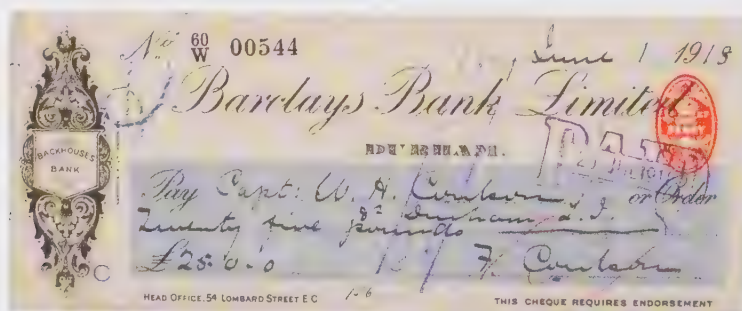 No 60/W 00544
June 1 1918
Barclays Bank Limited
DURHAM.
BACKHOUSES
BANK
PAID
Pay Capt: W. H. Coulson or Order
8th Durham L.I.
Twenty five pounds
£25.0.0
F Coulson
C
HEAD OFFICE, 54 LOMBARD STREET E C
1-6
THIS CHEQUE REQUIRES ENDORSEMENT